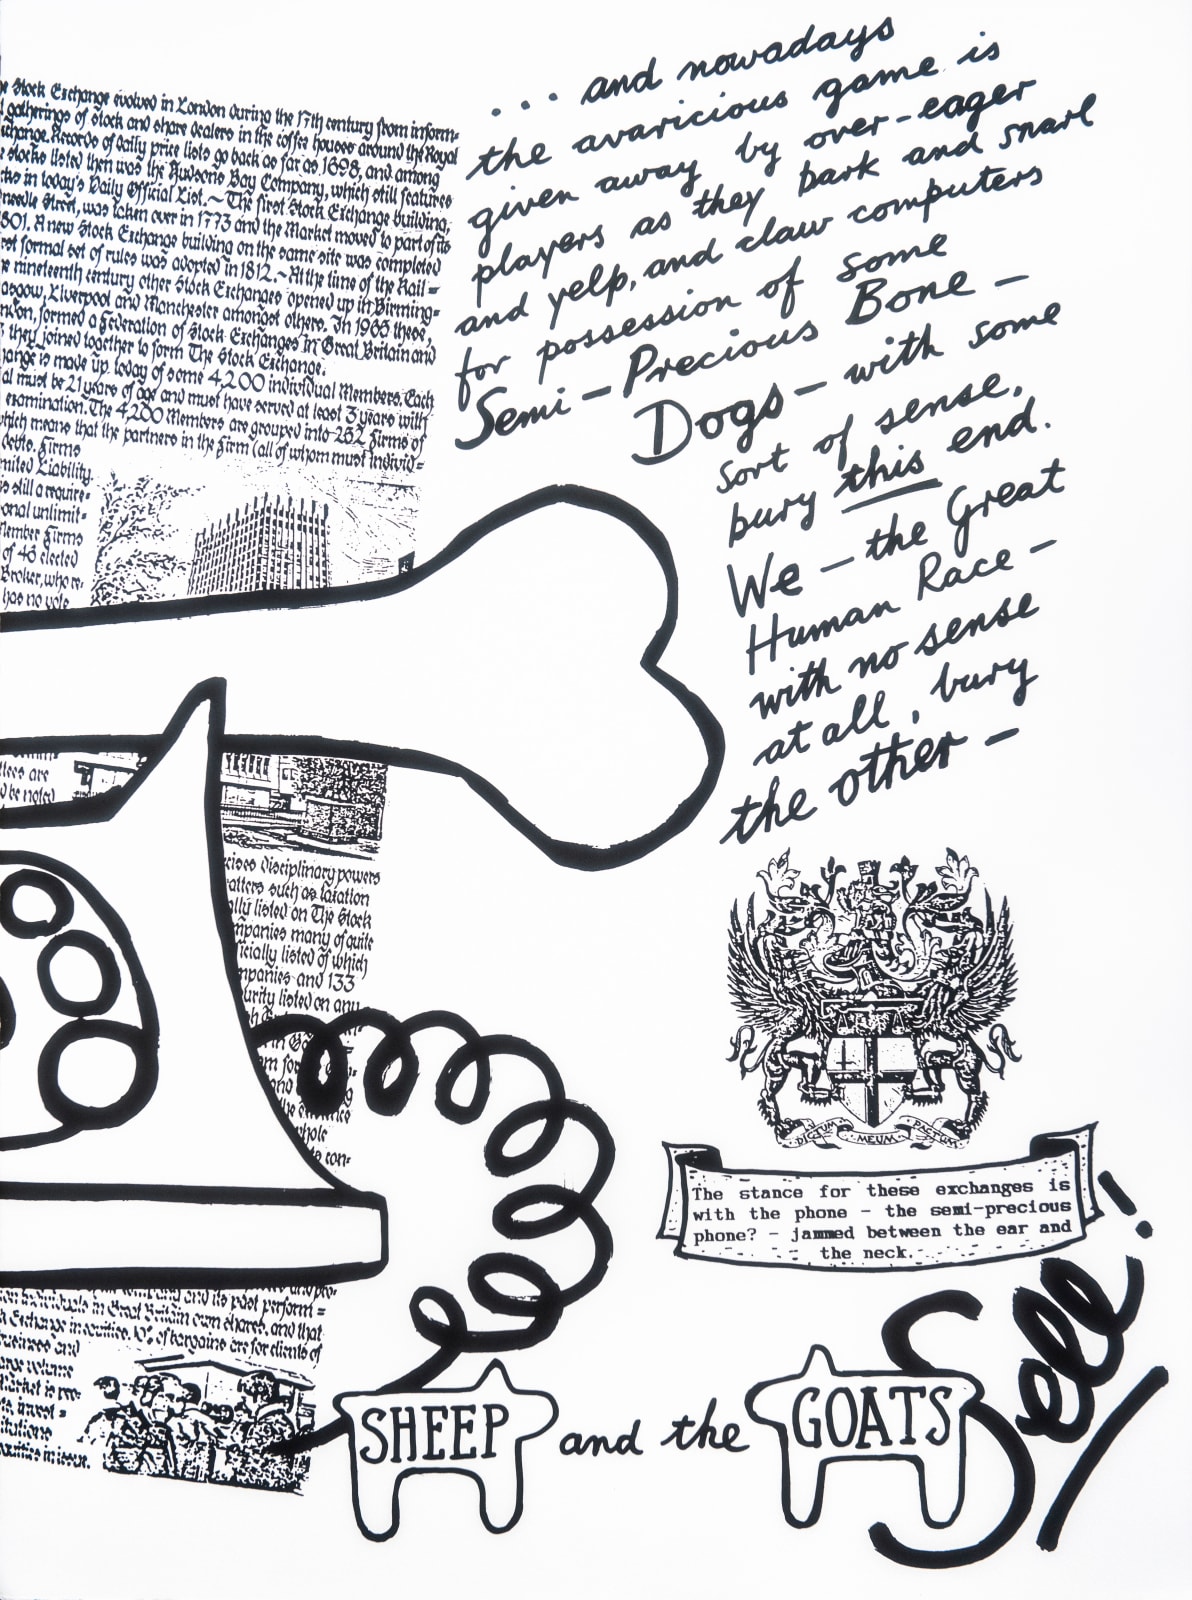 e Stock Exchange evolved in London during the 17th century from inform-
gatherings of stock and share dealers in the coffee houses around the Royal
change. Records of daily price lists go back as far as 1698, and among
stocks listed then was the Hudsons Bay Company, which still features
cks in today's Daily Official List. ~ The first Stock Exchange building,
needle Street, was taken over in 1773 and the Market moved to part of its
801. A new Stock Exchange building on the same site was completed
rst formal set of rules was adopted in 1812. ~ At the time of the Rail=
e nineteenth century other Stock Exchanges opened up in Birming-
asgow, Liverpool and Manchester amongst others. In 1965 these,
ndon, formed a Federation of Stock Exchanges in Great Britain and
they joined together to form The Stock Exchange.
hange is made up today of some 4,200 individual Members. Each
al must be 21 years of age and must have served at least 3 years with
examination. The 4,200 Members are grouped into 262 Firms of
which means that the partners in the Firm (all of whom must individ=
debts. Firms
mited Liability.
s still a require-
onal unlimit-
Member Firms
of 46 elected
Broker, who re-
has no vote
ttees are
d be noted
cises disciplinary powers
atters such as taxation
ally listed on The Stock
mpanies many of quite
ficially listed of which
mpanies and 133
urity listed on any
whole
to con-
company and its past perform=
individuals in Great Britain own shares, and that
k Exchange in equities, 10% of bargains are for clients of
business and
... and nowadays
the avaricious game is
given away by over-eager
players as they bark and snarl
and yelp, and claw computers
for possession of some
Semi-Precious Bone -
Dogs - with some
sort of sense,
bury this end.
We - the Great
Human Race -
with no sense
at all, bury
the other -
DICTUM MEUM PACTUM
The stance for these exchanges is
with the phone - the semi-precious
phone? - jammed between the ear and
the neck.
Sell!
SHEEP and the GOATS